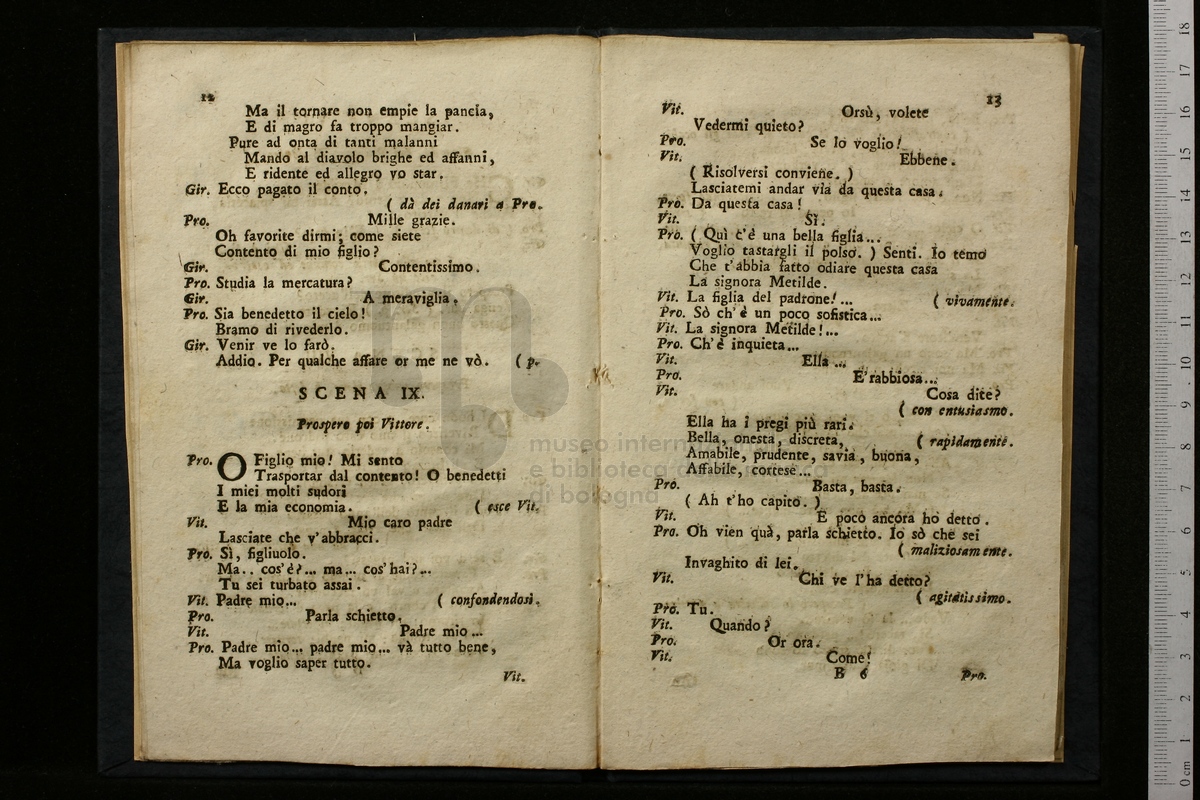 12
Ma il tornare non empie la pancia,
E di magro fa troppo mangiar.
Pure ad onta di tanti malanni
Mando al diavolo brighe ed affanni,
E ridente ed allegro vo star.
Gir. Ecco pagato il conto.
( dà dei danari a Pro.
Pro. Mille grazie.
Oh favorite dirmi; come siete
Contento di mio figlio?
Gir. Contentissimo.
Pro. Studia la mercatura?
Gir. A meraviglia.
Pro. Sia benedetto il cielo!
Bramo di rivederlo.
Gir. Venir ve lo farò.
Addio. Per qualche affare or me ne vò. ( p.
SCENA IX.
Prospero poi Vittore.
Pro. O Figlio mio! Mi sento
Trasportar dal contento! O benedetti
I miei molti sudori
E la mia economia. ( esce Vit.
Vit. Mio caro padre
Lasciate che v'abbracci.
Pro. Sì, figliuolo.
Ma.. cos'è?... ma... cos'hai?...
Tu sei turbato assai.
Vit. Padre mio... ( confondendosi.
Pro. Parla schietto.
Vit. Padre mio...
Pro. Padre mio... padre mio... và tutto bene,
Ma voglio saper tutto.
Vit.
13
Vit. Orsù, volete
Vedermi quieto?
Pro. Se lo voglio!
Vit. Ebbene.
( Risolversi conviene. )
Lasciatemi andar via da questa casa.
Pro. Da questa casa!
Vit. Sì.
Pro. ( Quì c'è una bella figlia...
Voglio tastargli il polso. ) Senti. Io temo
Che t'abbia fatto odiare questa casa
La signora Metilde.
Vit. La figlia del padrone!... ( vivamente.
Pro. Sò ch'è un poco sofistica...
Vit. La signora Metilde!...
Pro. Ch'è inquieta...
Vit. Ella...
Pro. E' rabbiosa...
Vit. Cosa dite?
( con entusiasmo.
Ella ha i pregi più rari.
Bella, onesta, discreta, ( rapidamente.
Amabile, prudente, savia, buona,
Affabile, cortese...
Pro. Basta, basta.
( Ah t'ho capito. )
Vit. E poco ancora ho detto.
Pro. Oh vien quà, parla schietto. Io sò che sei
( maliziosamente.
Invaghito di lei.
Vit. Chi ve l'ha detto?
( agitatissimo.
Pro. Tu.
Vit. Quando?
Pro. Or ora.
Vit. Come!
B 6 Pro.
museo intern
e biblioteca d
di bologna
0 cm 1 2 3 4 5 6 7 8 9 10 11 12 13 14 15 16 17 18